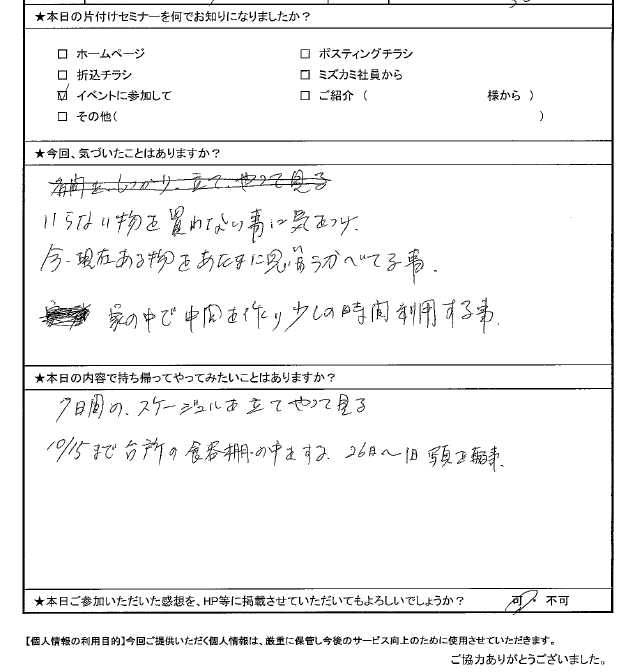 ★本日の片付けセミナーを何でお知りになりましたか?
□ ホームページ □ ポスティングチラシ
□ 折込チラシ □ ミズカミ社員から
☑ イベントに参加して □ ご紹介( 様から )
□ その他( )
★今回、気づいたことはありますか?
いらない物を買わない事に気をつけ、
今、現在ある物をあたまに思いうかべてる事.
家の中で中間を作り少しの時間利用する事.
★本日の内容で持ち帰ってやってみたいことはありますか?
7日間の、スケージュルを立てやって見る
10/15まで台所の食器棚の中をする、26日〜
★本日ご参加いただいた感想を、HP等に掲載させていただいてもよろしいでしょうか? 可・不可
【個人情報の利用目的】今回ご提供いただく個人情報は、厳重に保管し今後のサービス向上のために使用させていただきます。
ご協力ありがとうございました。